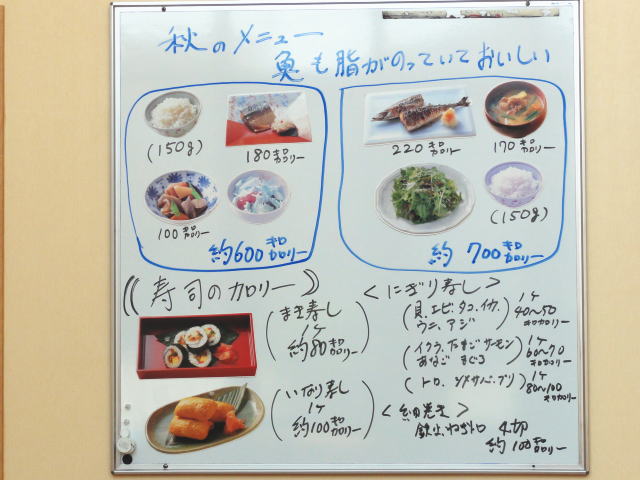 秋のメニュー
魚も脂がのっていておいしい
(150g)
180キロカロリー
100キロカロリー
約600キロカロリー
220キロカロリー
170キロカロリー
(150g)
約700キロカロリー
((寿司のカロリー))
(まき寿し
1ケ
約80キロカロリー)
(いなり寿し
1ケ
約100キロカロリー)
<にぎり寿し>
(貝、エビ、タコ、イカ、
ウニ、アジ)
1ケ
40~50
キロカロリー
(イクラ、たまご、サーモン
あなご まぐろ)
1ケ
60~70
キロカロリー
(トロ、シメサバ、ブリ)
1ケ
80~100
キロカロリー
<細巻き>
鉄火、ねぎトロ 4切
約100キロカロリー